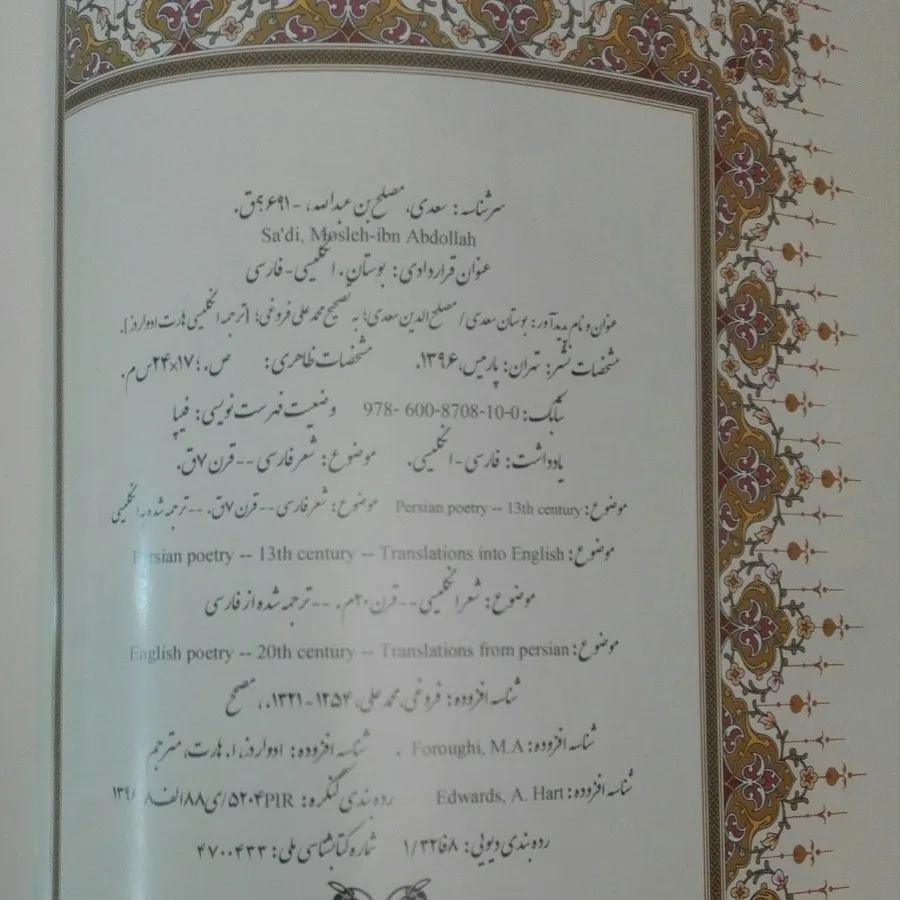 سرشناسه: سعدی، مصلح بن عبدالله، -۶۹۱؟ق.
Sa'di, Mosleh-ibn Abdollah
عنوان قراردادی: بوستان. انگلیسی-فارسی
عنوان و نام پدیدآور: بوستان سعدی/ مصلح الدین سعدی؛ به تصحیح محمدعلی فروغی؛ [ترجمه انگلیسی هارت ادواردز].
مشخصات نشر: تهران: پارمیس، ۱۳۹۶. مشخصات ظاهری: ص.؛ ۱۷×۲۴س م.
شابک: 978- 600-8708-10-0 وضعیت فهرست نویسی: فیپا
یادداشت: فارسی-انگلیسی. موضوع: شعر فارسی -- قرن ۷ق.
موضوع: Persian poetry -- 13th century موضوع: شعر فارسی -- قرن ۷ق. -- ترجمه شده به انگلیسی
موضوع: Persian poetry -- 13th century -- Translations into English
موضوع: شعر انگلیسی -- قرن ۲۰م. -- ترجمه شده از فارسی
موضوع: English poetry -- 20th century -- Translations from persian
شناسه افزوده: فروغی، محمدعلی، ۱۲۵۴-۱۳۲۱.، مصحح
شناسه افزوده: Foroughi, M.A . شناسه افزوده: ادواردز، ا. هارت، مترجم
شناسه افزوده: Edwards, A. Hart رده بندی کنگره: PIR۵۲۰۴/ی۸۸الف۸ ۱۳۹۶
رده بندی دیویی: ۸فا۱/۳۲ شماره کتابشناسی ملی: ۴۷۰۰۴۳۳